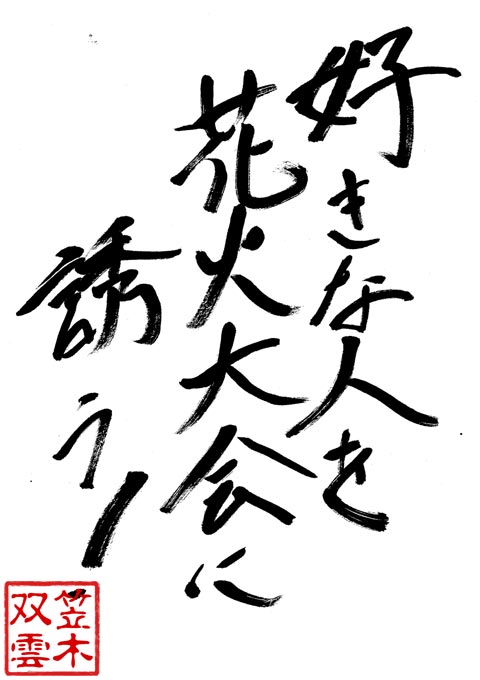 好きな人を
花火大会に
誘う!
笠木
双雲